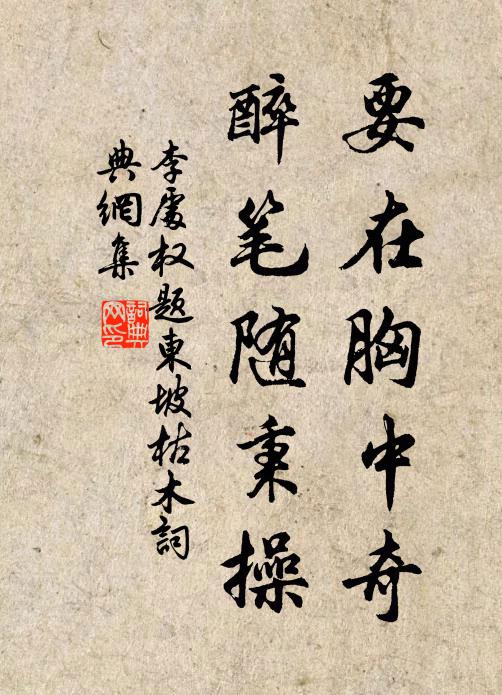 要在胸中奇
醉笔随秉操
李處权题東坡枯木詞
典網集
詞典网印